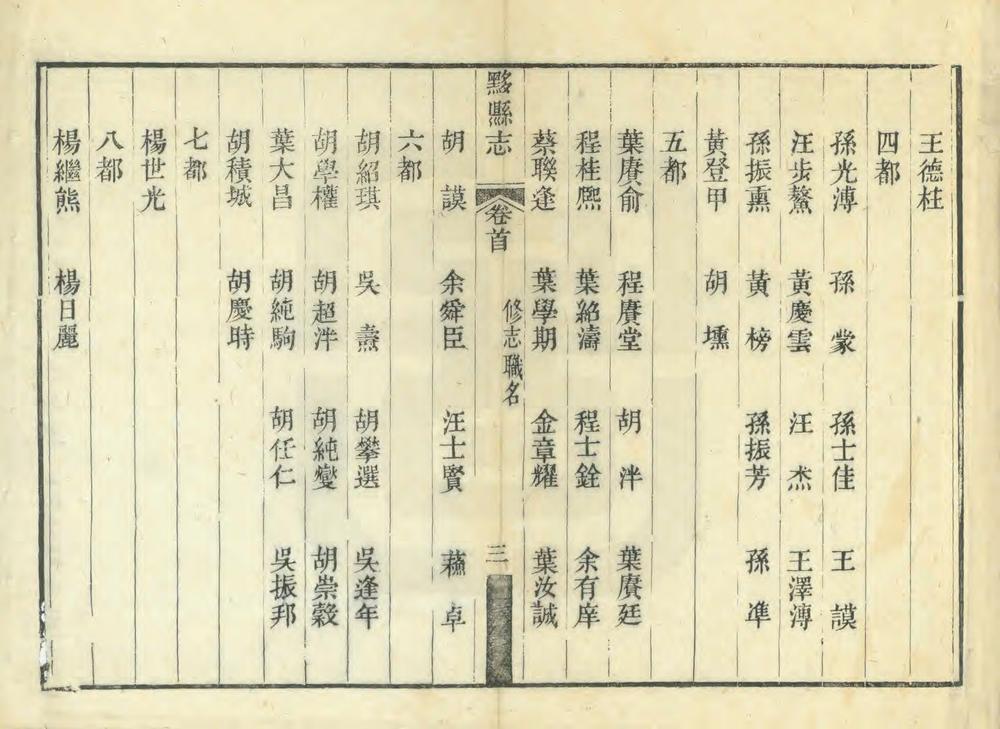 王德柱
四都
孫光溥 孫蒙 孫士佳 王謨
汪步鰲 黃慶雲 汪杰 王澤溥
孫振熏 黃榜 孫振芳 孫凖
黃登甲 胡壎
五都
葉賡俞 程賡堂 胡泮 葉賡廷
程桂熙 葉紹濤 程士銓 余有庠
蔡聯逢 葉學期 金章耀 葉汝誠
黟縣志 卷首 修志職名 三
胡謨 余舜臣 汪士賢 蘇卓
六都
胡紹琪 吳燾 胡攀選 吳逢年
胡學權 胡超泮 胡純燮 胡崇穀
葉大昌 胡純駒 胡任仁 吳振邦
胡積城 胡慶時
七都
楊世光
八都
楊繼熊 楊日麗